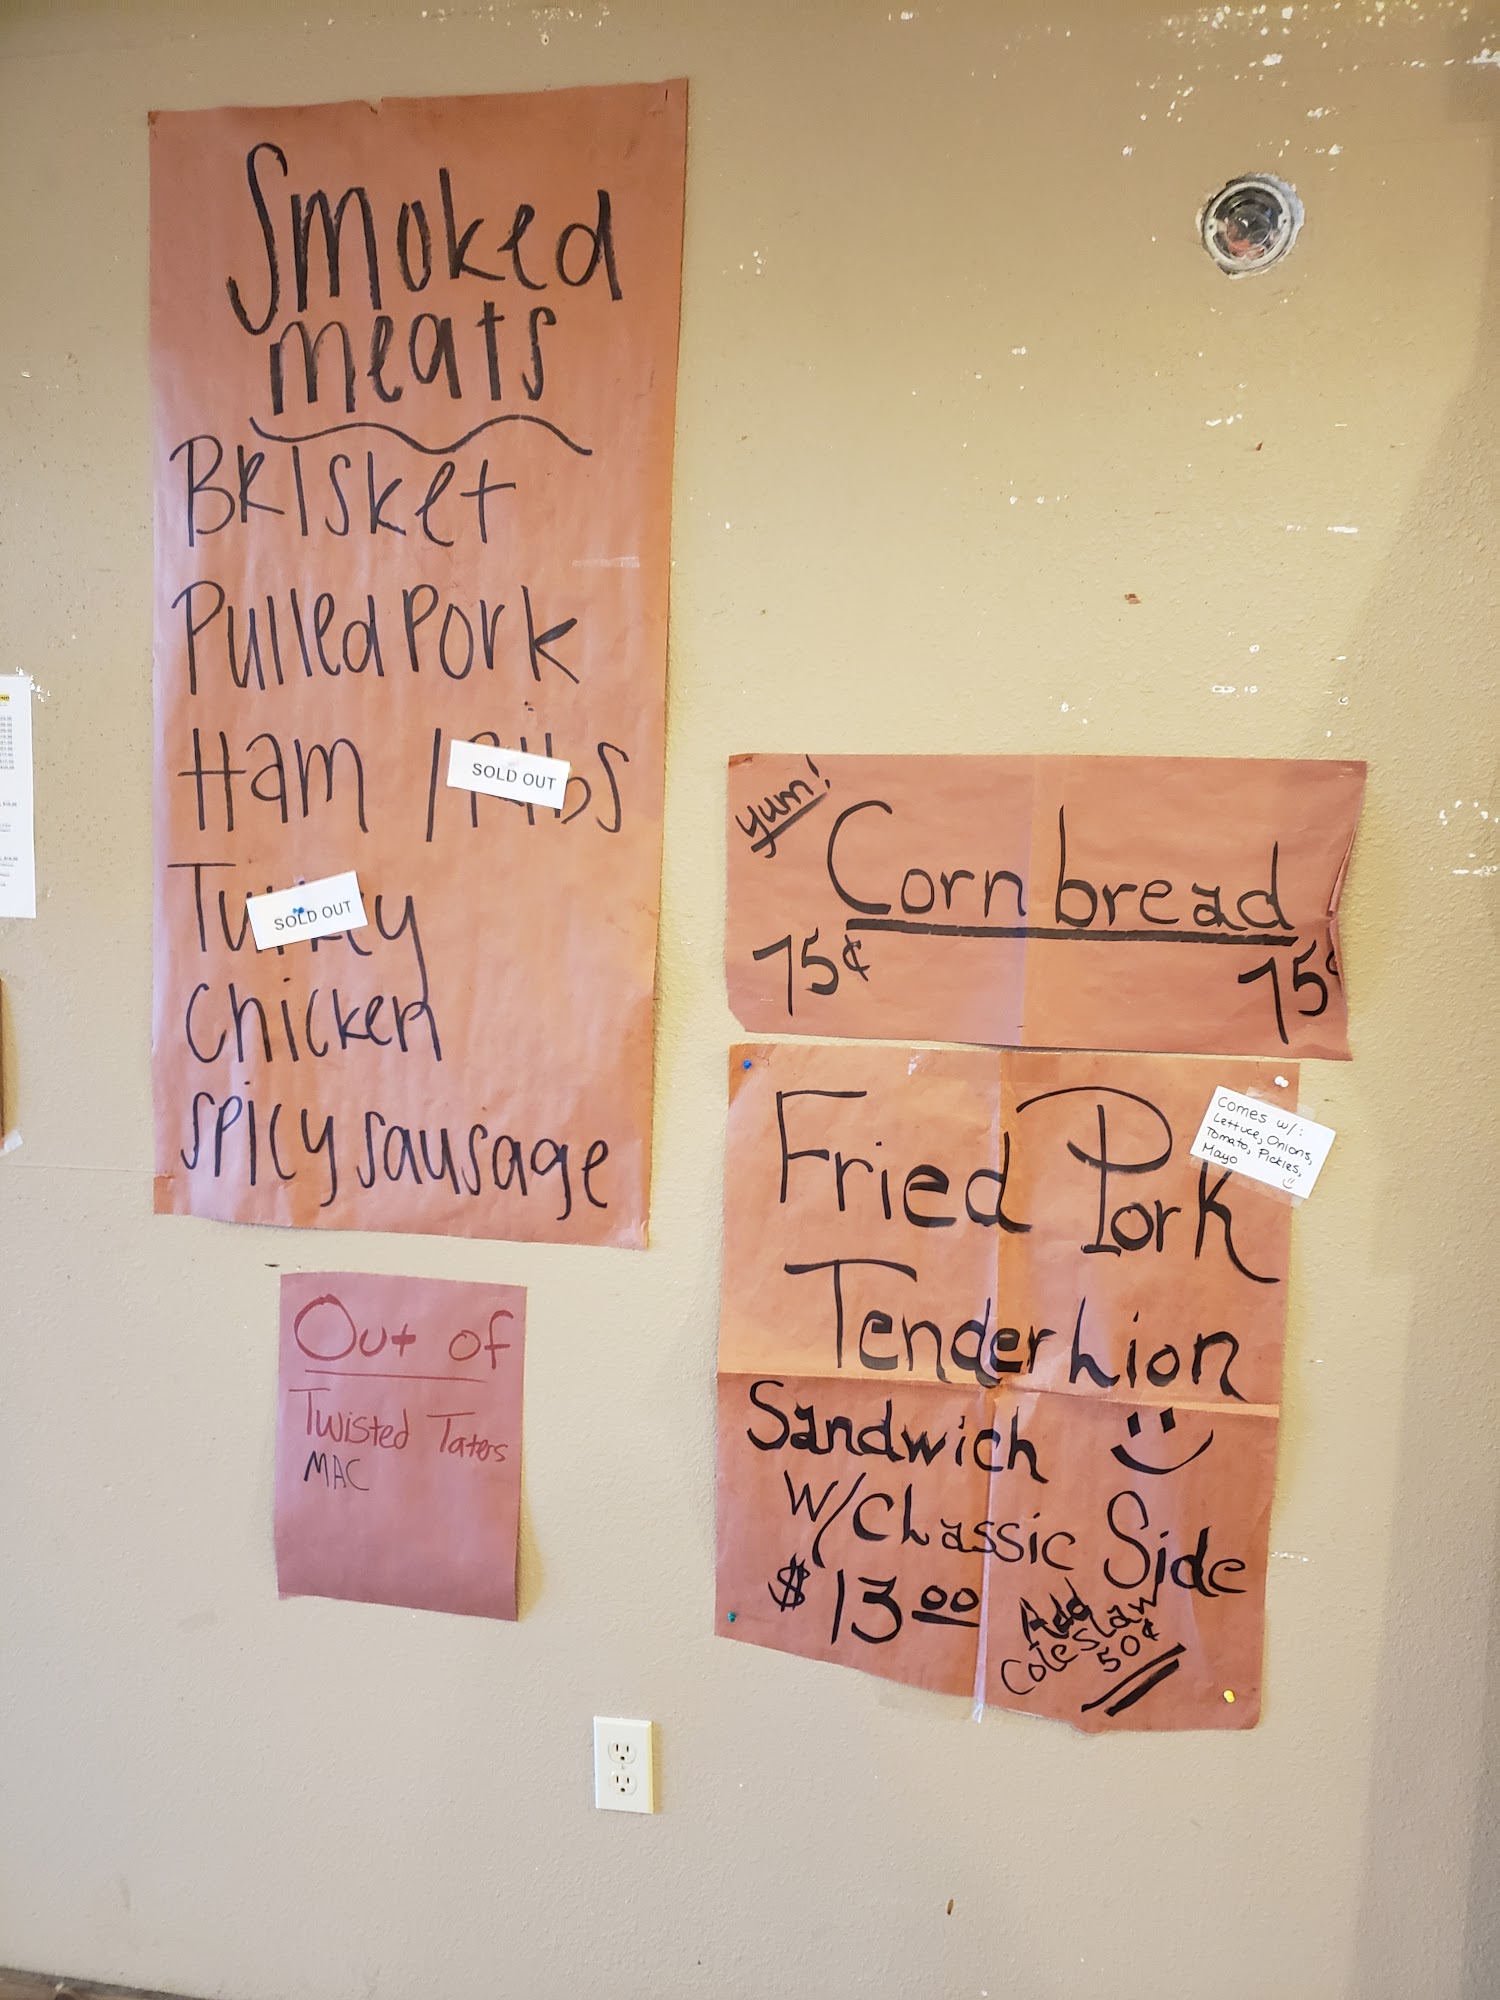 Smoked
meats
BRISket
Pulled Pork
Ham / Ribs
SOLD OUT
Turkey
SOLD OUT
Chicken
Spicy sausage
Out of
Twisted Taters
MAC
yum!
Corn bread
75¢ 75¢
Fried Pork
Comes w/:
Lettuce, Onions,
Tomato, Pickles,
Mayo
TenderLion
Sandwich
W/Classic Side
$13.00
Add
Coleslaw
50¢